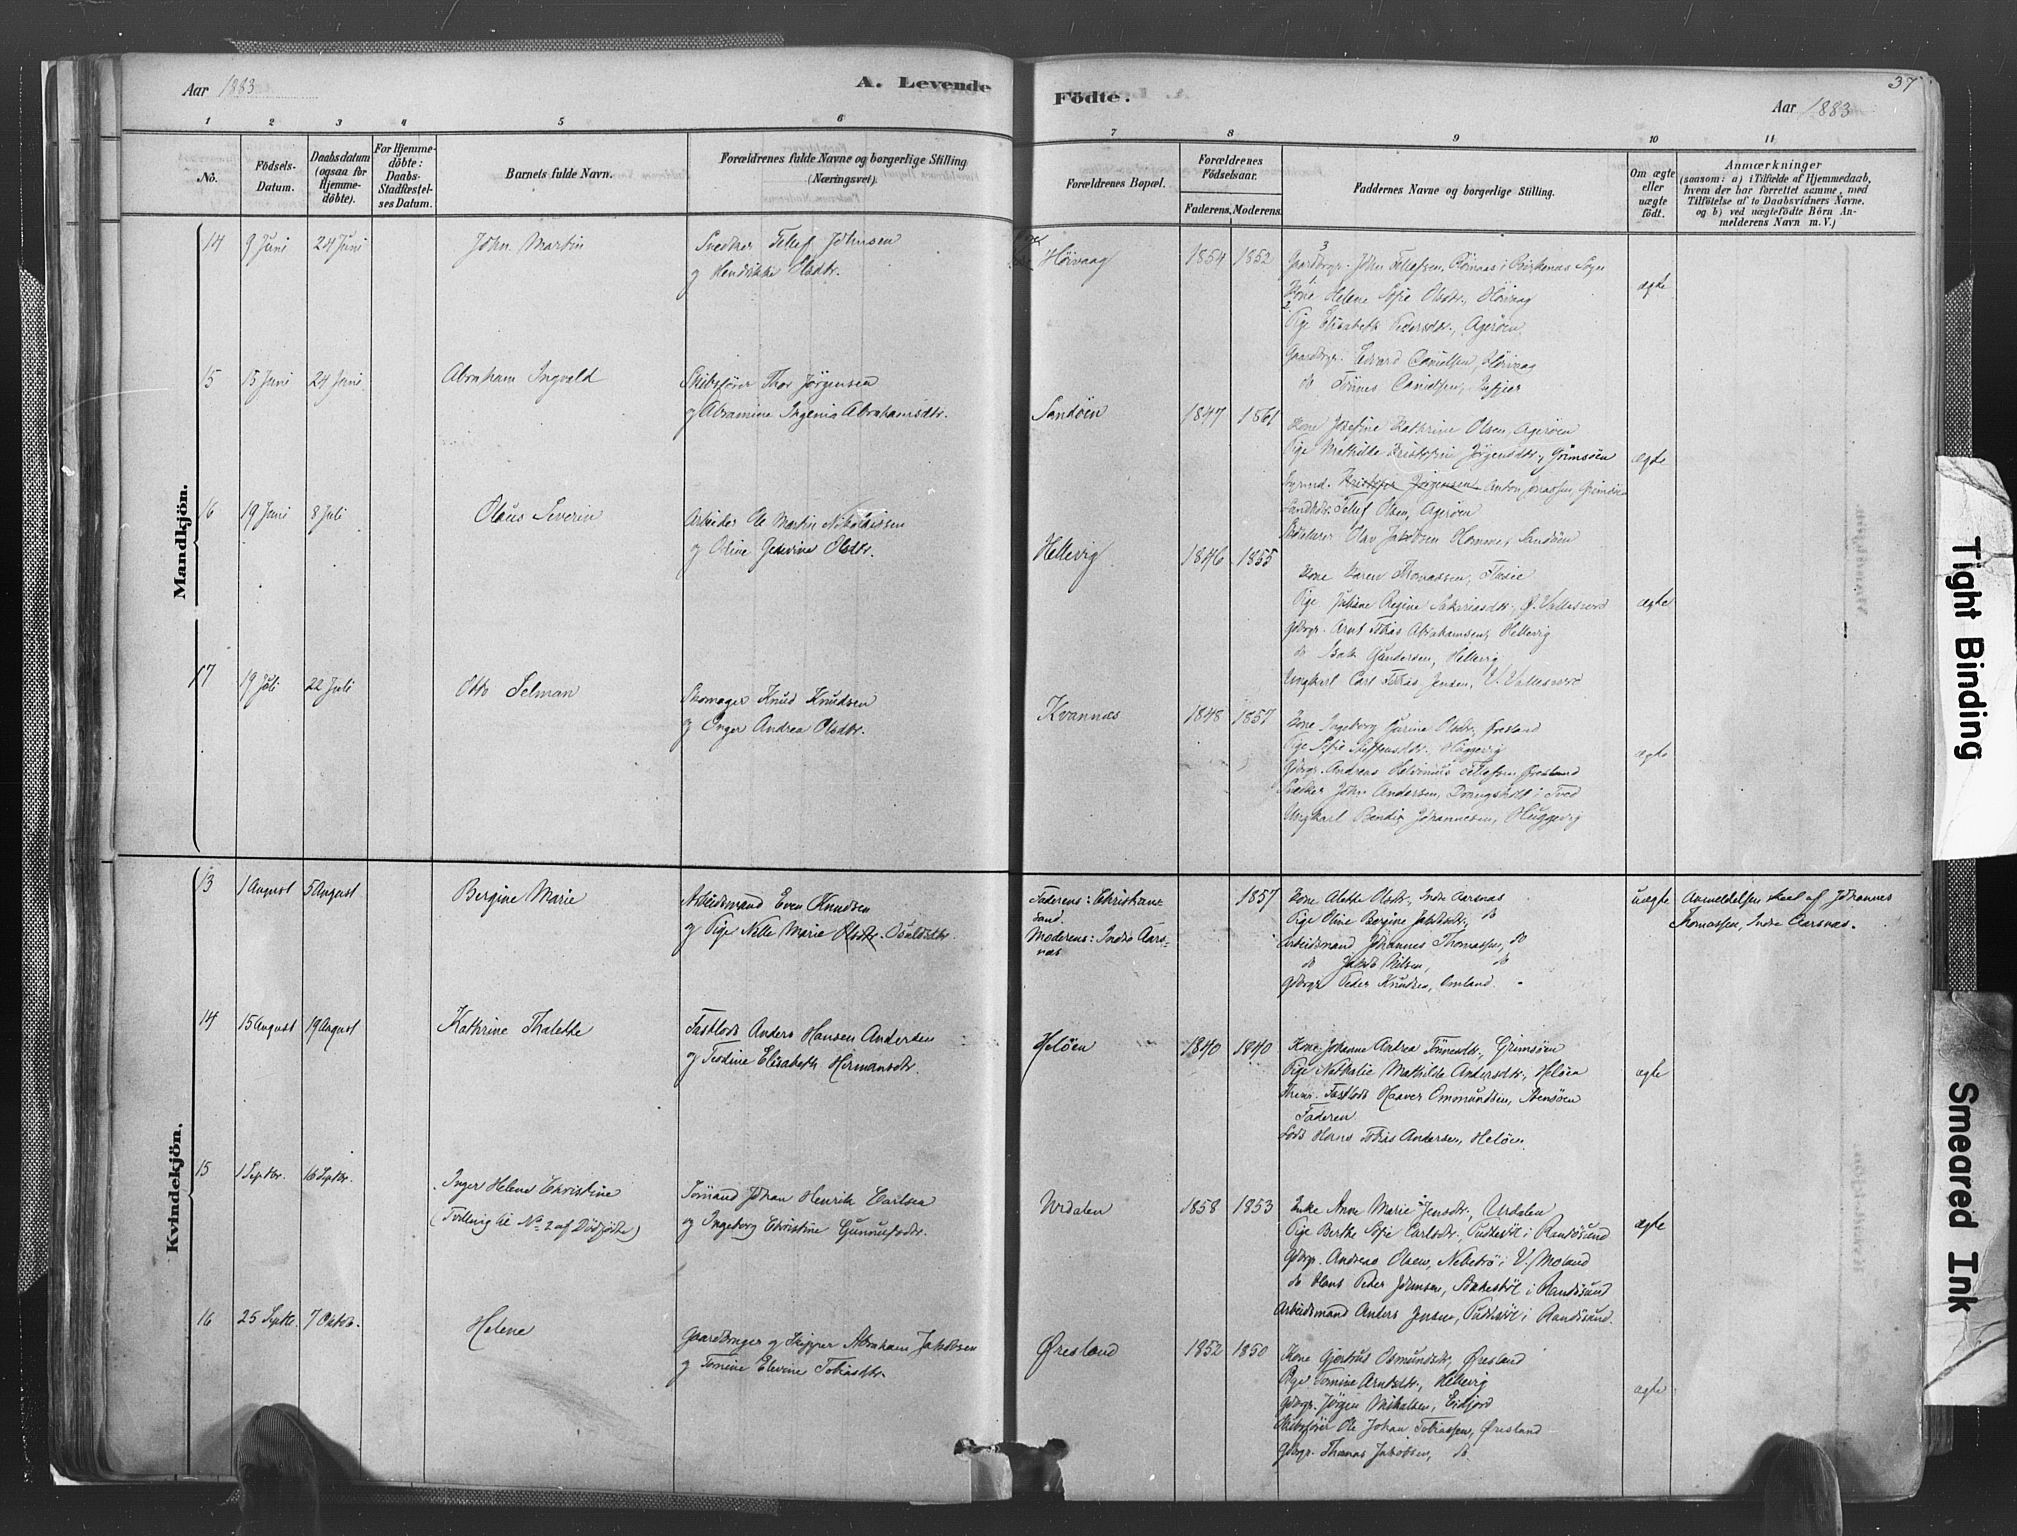 Aar 1883
A. Levende
Födte.
37
Aar 1883
1
2
3
4
5
6
7
8
9
10
11
No.
Födsels-
Datum.
Daabsdatum
(ogsaa for
Hjemme-
döbte).
For Hjemme-
döbte:
Daabs-
Stadfæstel-
ses Datum.
Barnets fulde Navn.
Forældrenes fulde Navne og borgerlige Stilling
(Næringsvei).
Forældrenes Bopæl.
Forældrenes
Födselsaar.
Faderens.
Moderens.
Faddernes Navne og borgerlige Stilling.
Om ægte
eller
uægte
födt.
Anmærkninger
(saasom: a) i Tilfælde af Hjemmedaab,
hvem der har forrettet samme, med
Tilföielse af to Daabsvidners Navne,
og b) ved uægtefödte Börn An-
melderens Navn m. V.)
Mandkjön.
14
9 Juni
24 Juni
John Martin
Snedker Tellef Johnsen
og Hendrikke Olsdtr.
Höivaag
1854
1852
Gaardbrgr. John Tellefsen, i Birkenes Sogn
Kone Helene Sofie Olsdtr., Höivaag
Pige Elisabeth Pedersdtr., Ageröen
Gaardbrgr. Edvard Danielsen, Höivaag
do Tönnes Danielsen,
ægte
15
15 Juni
24 Juni
Abraham Ingvald
Skibsförer Thor Jörgensen
og Abramine Ingenia Abrahamsdtr.
Sandöen
1847
1861
Kone Josefine Kathrine Olsen, Ageröen
Pige Mathilde Jörgensdtr., Grimsöen
Kristofer Jörgensen Anton Jonassen, Grimsöen
Tellef Olsen, Ageröen
Olav Jakobsen Homme, Sandöen
ægte
16
19 Juni
8 Juli
Olaus Severin
Arbeider Ole Martin Nikolaissen
og Oline Gesevine Olsdtr.
Hellevig
1846
1855
Kone Karen Thomassen,
Pige Juliane Regine Sakariasdtr., Ö. Vallesverd
Gdbrgr. Arnt Tobias Abrahamsen, Hellevig
do Isak Gundersen, Hellevig
Ungkarl Carl Tobias Jensen, V. Vallesverd
ægte
17
19 Juli
22 Juli
Otto Selman
Skomager Knud Knudsen
og Andrea Olsdtr.
Kvannes
1848
1857
Kone Ingeborg Gurine Olsdtr., Øresland
Pige Sofie Steffensdtr., Huggevig
Gdbrgr. Andreas Tellefsen Øresland
Snedker John Andersen, i Tved
Ungkarl Bendix Johannesen, Huggevig
ægte
Kvindekjön.
13
1 August
5 August
Bergine Marie
Arbeidsmand Even Knudsen
og Pige Nelle Marie Olsdtr. Osuldsdtr.
Faderens: Christian-
sand.
Moderens: Indre Aars-
nes
1857
Kone Alette Olsdtr., Indre Aarsnæs
Pige Oline Bergine Jakobsdtr., do
Arbeidsmand Johannes Thomassen, do
do Jakob Nilsen, do
Gdbrgr Peder Knudsen, Omland.
uægte
Anmeldelsen skeet af Johannes
Thomassen, Indre Aarsnæs.
14
15 August
19 August
Kathrine Thalette
Fastlods Anders Hansen Andersen
og Tesdine Elisabeth Hermansdtr.
Helöen
1840
1840
Kone Johanne Andrea Tönnesdtr., Grimsöen
Pige Nathalie Mathilde Andersdtr., Helöen
Fastlods Haaver Omundsen, Stensöen
Faderen
Lods Hans Tobias Andersen, Helöen
ægte
15
1 Septbr.
16 Septbr.
Inger Helene Christine
(Tvilling til No 2 af Dödfödte)
Sömand Johan Henrik Carlsen
og Ingeborg Christine Gunnufsdtr.
Urdalen
1858
1853
Enke Anne Marie Jensdtr., Urdalen
Pige Berthe Sofie Carlsdtr., i Randösund
Gdbrgr. Andreas Olsen, i V. Moland
do Hans Peder Johnsen, Stokkestöl i Randösund
Arbeidsmand Anders Jensen, i Randösund.
ægte
16
25 Septbr.
7 Oktbr.
Helene
Gaardbruger og Skipper Abraham Jakobsen
og Tomine Elevine Tobiasdtr.
Øresland
1852
1850
Kone Gjertrud Osmundsdtr., Øresland
Pige Tomine Arntsdtr., Hellevig
Gdbrgr. Jörgen Mikalsen, Eidjord
Skibsförer Ole Johan Tobiassen, Øresland
Gdbrgr. Thomas Jakobsen, do.
ægte
Tight Binding
Smeared Ink